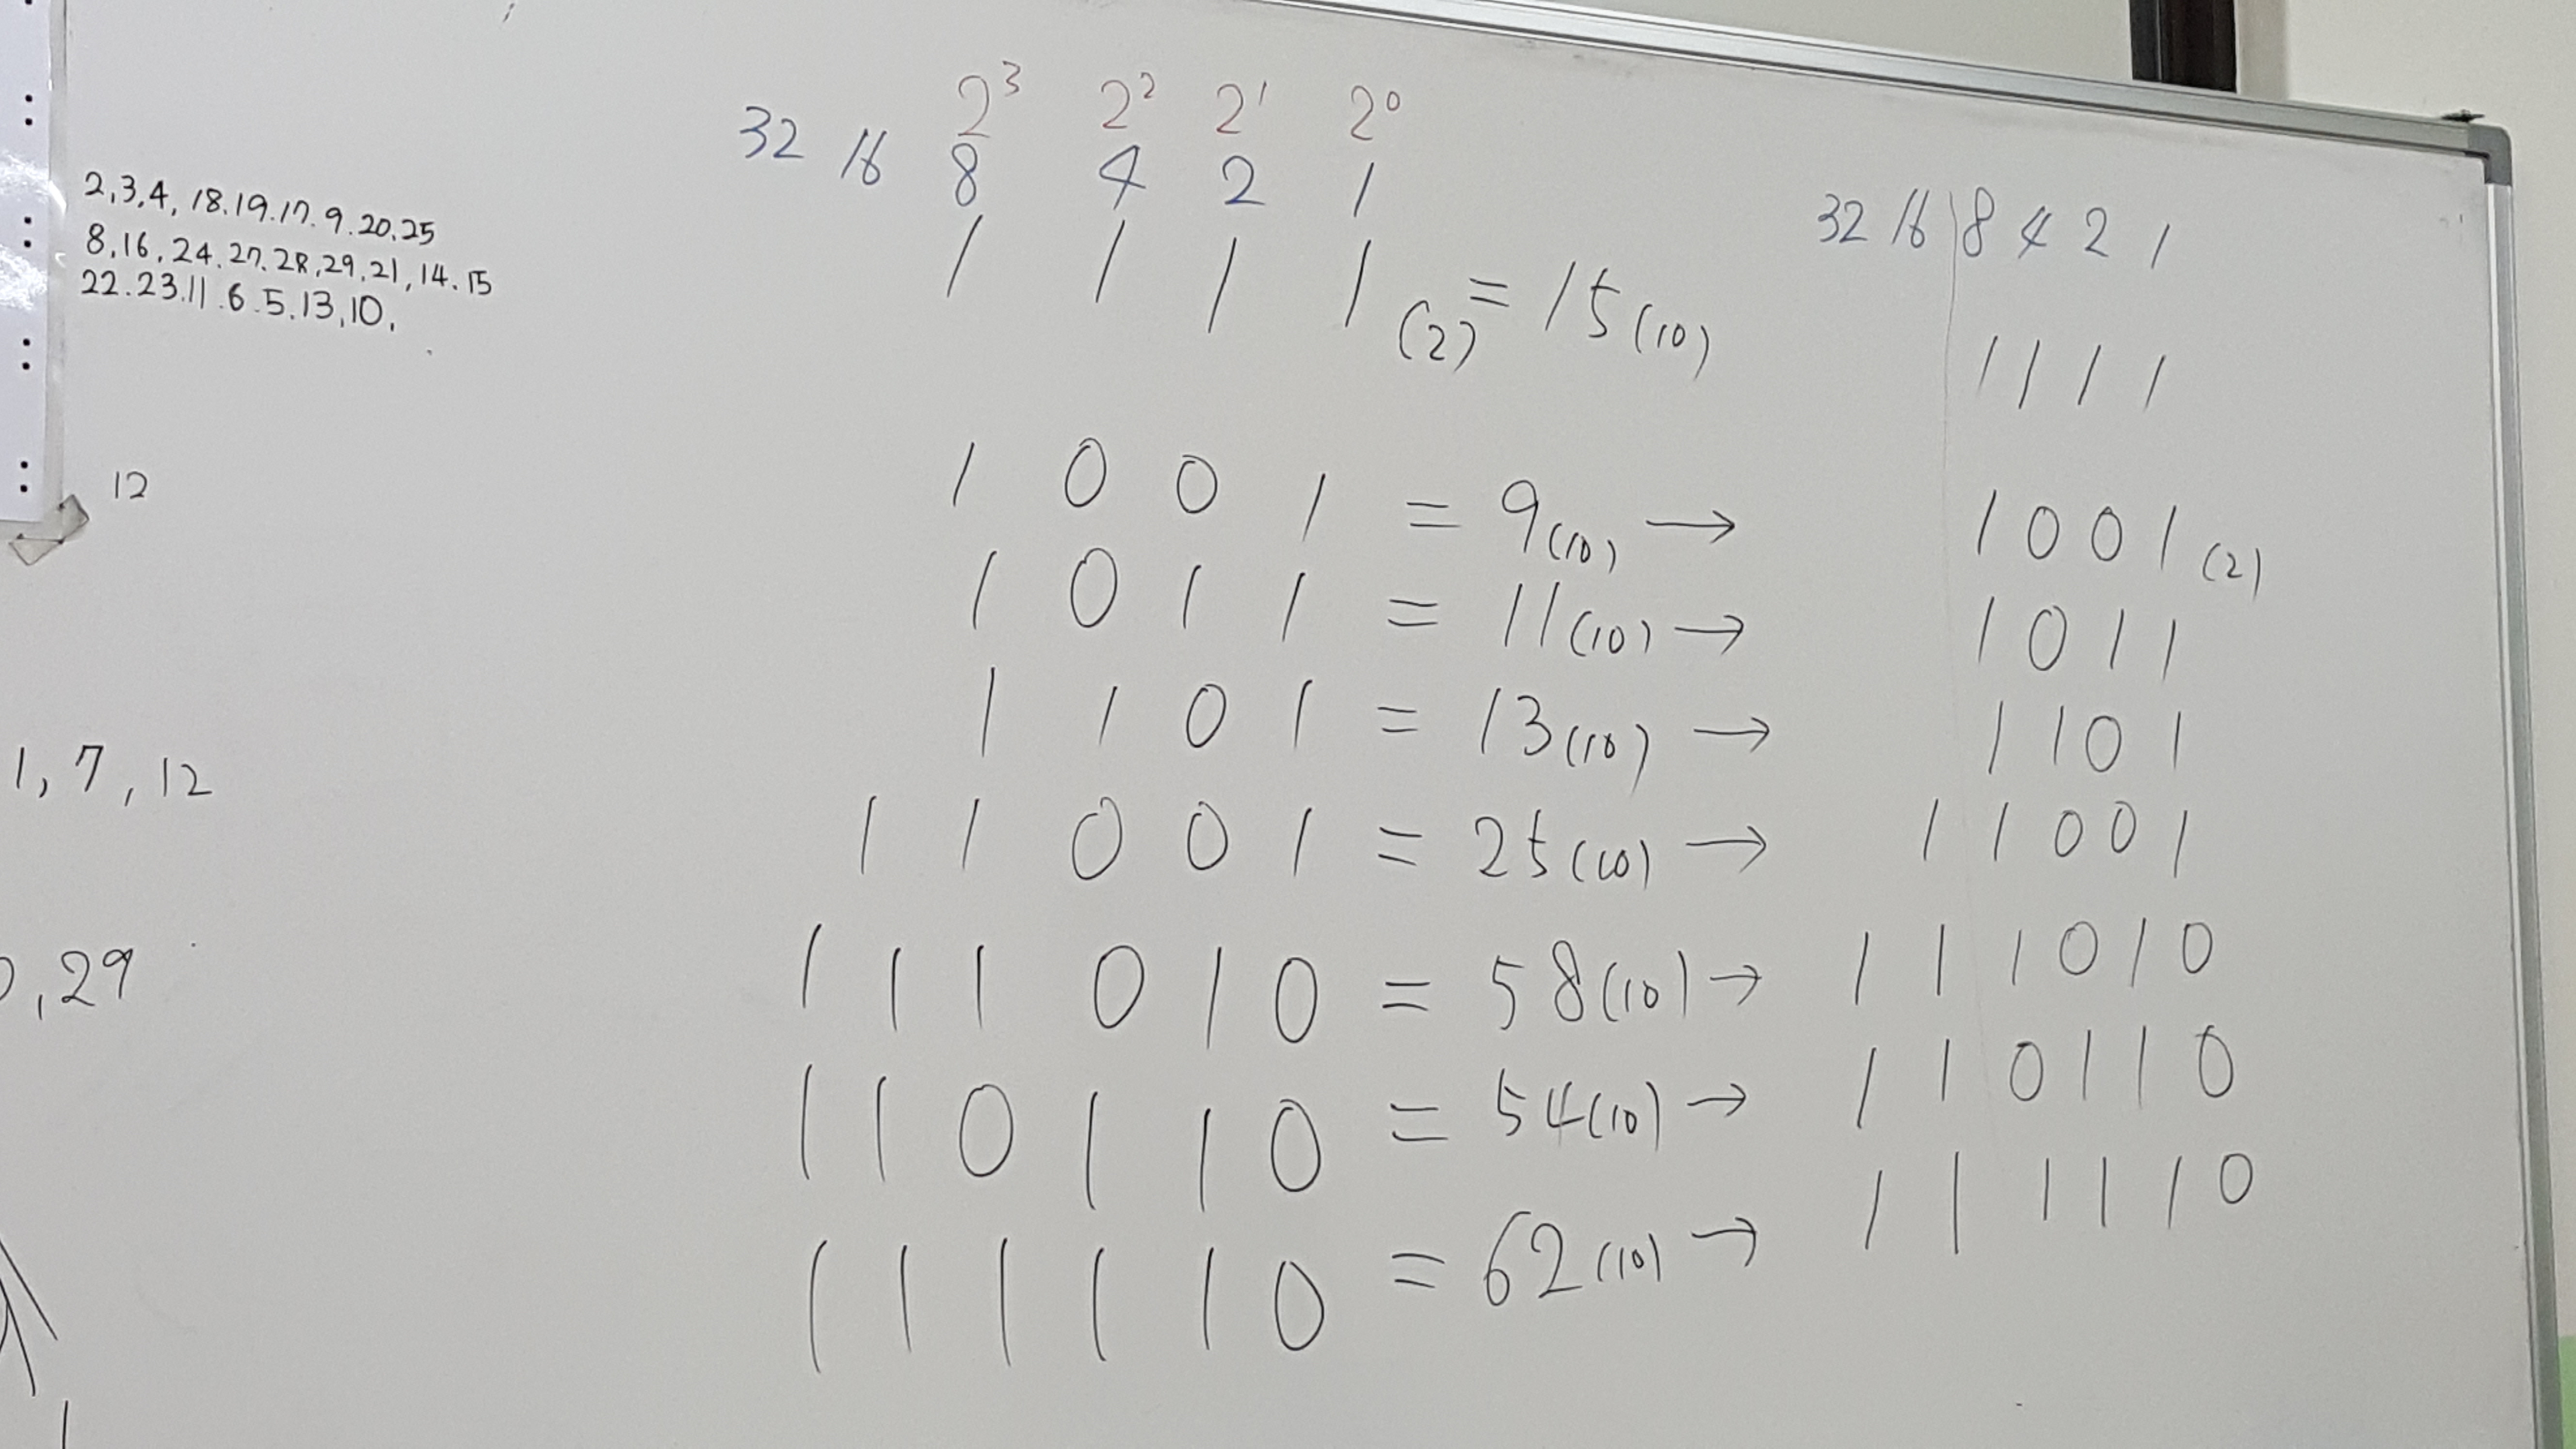 2,3,4, 18.19.17.9.20.25
8,16,24.27.28,29,21,14.15
22.23.11.6.5.13,10,
12
1, 7, 12
,29
2³ 2² 2¹ 2⁰
32 16 8 4 2 1
1 1 1 1 (2) = 15(10)
1 0 0 1 = 9(10) →
1 0 1 1 = 11(10) →
1 1 0 1 = 13(10) →
1 1 0 0 1 = 25(10) →
1 1 1 0 1 0 = 58(10) →
1 1 0 1 1 0 = 54(10) →
1 1 1 1 1 0 = 62(10) →
32 16 8 4 2 1
1 1 1 1
1 0 0 1 (2)
1 0 1 1
1 1 0 1
1 1 0 0 1
1 1 1 0 1 0
1 1 0 1 1 0
1 1 1 1 1 0